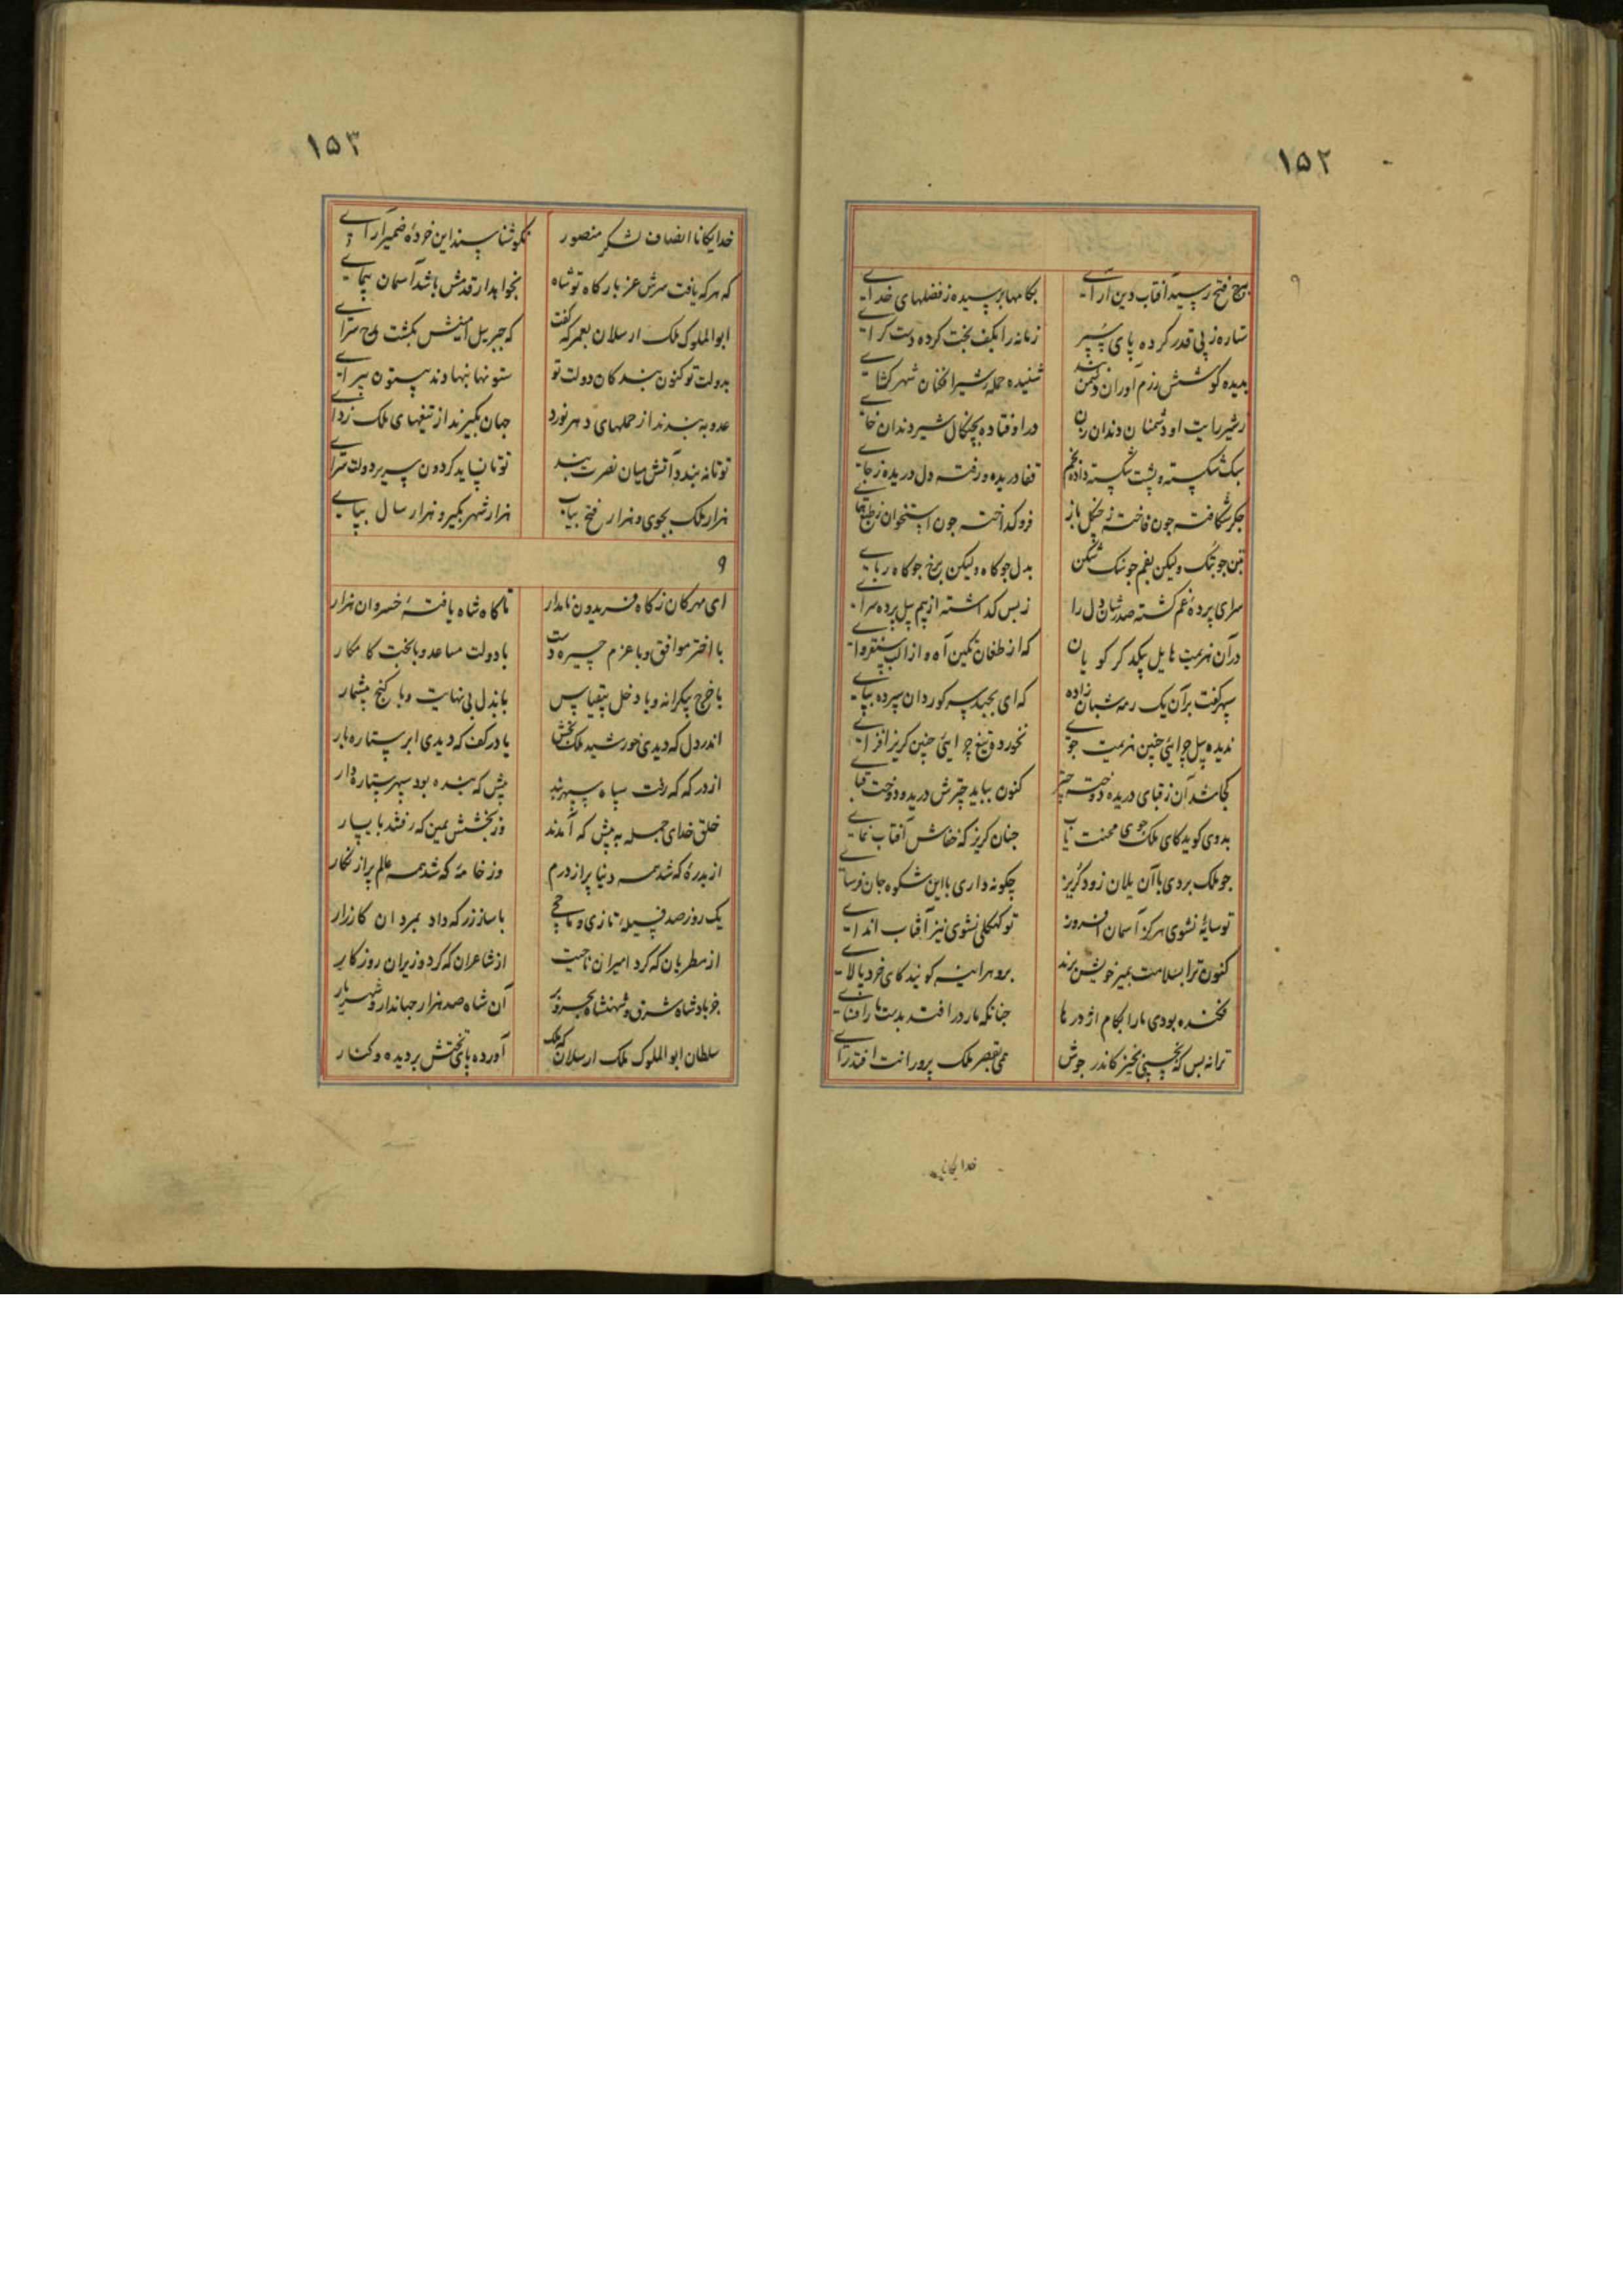 ۱۵۲
۹
باوج فتح رسید آفتاب دین آرای بکامها برسیده ز فضلهای خدای
ستاره ز پی قدر کرده پای سپر زمانه را بکف بخت کرده دست کرای
بدیده کوشش رزم آوران دشمن شنیده حمله شیرافکنان شهر کشای
ز شیر رایت او دشمنان دندان زن در اوفتاده بچنکال شیر دندان خای
شکسته و پشت شکسته داده قفا دریده و رفته دل دریده ز جای
جکر شکافته چون فاخته ز چنکل باز فرو کداخته چون استخوان ز طبع همای
بتن چو تنک ولیکن بغم چو تنک شکن بدل چو کاه ولیکن برخ چو کاه ربای
سرای پرده غم کشته صدشان دل را ز بس کذاشته از بیم پیل پرده سرای
در آن هزیمت هایل یکدکر کویان که از طغان تکین آه و از
سپهر کفت بر آن یک رمه شبان زاده که ای بجمله سپه کوردان سپرده بپای
ندیده پیل چرایی چنین هزیمت جوی نخورده تیغ چرایی چنین کریز افزای
کجا شد آن ز قبای دریده دوخته چتر کنون بباید چترش دریده دوخت قبای
بدوی کوید کای ملک جوی محنت یاب چنان کریز که خفاش آفتاب نمای
چو ملک بردی با آن یلان زود کریز چکونه داری با این شکوه جان فرسای
تو سایه نشوی هرکز آسمان افروز تو کهکلی نشوی نیز آفتاب اندای
کنون ترا بسلامت بمیر خویش برند برو هراینه کویند کای خرد پالای
فکنده بودی ما را بکام اژدرها چنانکه مار درافتد بدست مارافسای
ترا نه بس که بخسبی بخیز کاندر جوش همی بقصر ملک پرورانت افتد رای
خدایکانا
۱۵۳
خدایکانا انصاف لشکر منصور نکو شناس پسند این خرده ضمیر آرای
که هرکه یافت سرش عز بارکاه تو شاه بخواب دارد قدمش باشد آسمان پیمای
ابوالملوک ملک ارسلان بمعرکه کفت که جبریل امینش بکشت مدح سرای
بدولت تو کنون بندکان دولت تو ستونها بنهادند بیستون پیرای
عدو به بندند از حملهای دهر نورد جهان بکیرند از تیغهای ملک زدای
تو تا نه بندد آتش میان نصرت بند تو تا نپاید کردون سریر دولت سرای
هزار ملک بجوی و هزار فتح بیاب هزار شهر بکیر و هزار سال بپای
۹
ای مهرکان ز کاه فریدون نامدار تا کاه شاه یافته خسروان هزار
با اختر موافق و با عزم چیره دست با دولت مساعد و با بخت کامکار
با خرج بیکرانه و با دخل بیقیاس با بذل بی نهایت و با کنج بیشمار
اندر دل که دیدی خورشید ملک بخش یا در کف که دیدی ابر ستاره بار
از درکه که رفت سپاه سپهربند پیش که بنده بود سپهر ستاره دار
خلق خدای جمله به پیش که آمدند وز بخشش یمین که رفتند با یسار
از بدره که شد همه دنیا پر از درم وز خامه که شد همه عالم پر از نکار
یک روز صد فسیله تازی و با ساز زر که داد بمردان کارزار
از مطربان که کرد امیران ناحیت از شاعران که کرد وزیران روزکار
جز پادشاه شرق و شهنشاه بحر و بر آن شاه صد هزار جهاندار و شهریار
سلطان ابوالملوک ملک ارسلان که ملک آورده پای تختش بر دیده و کنار